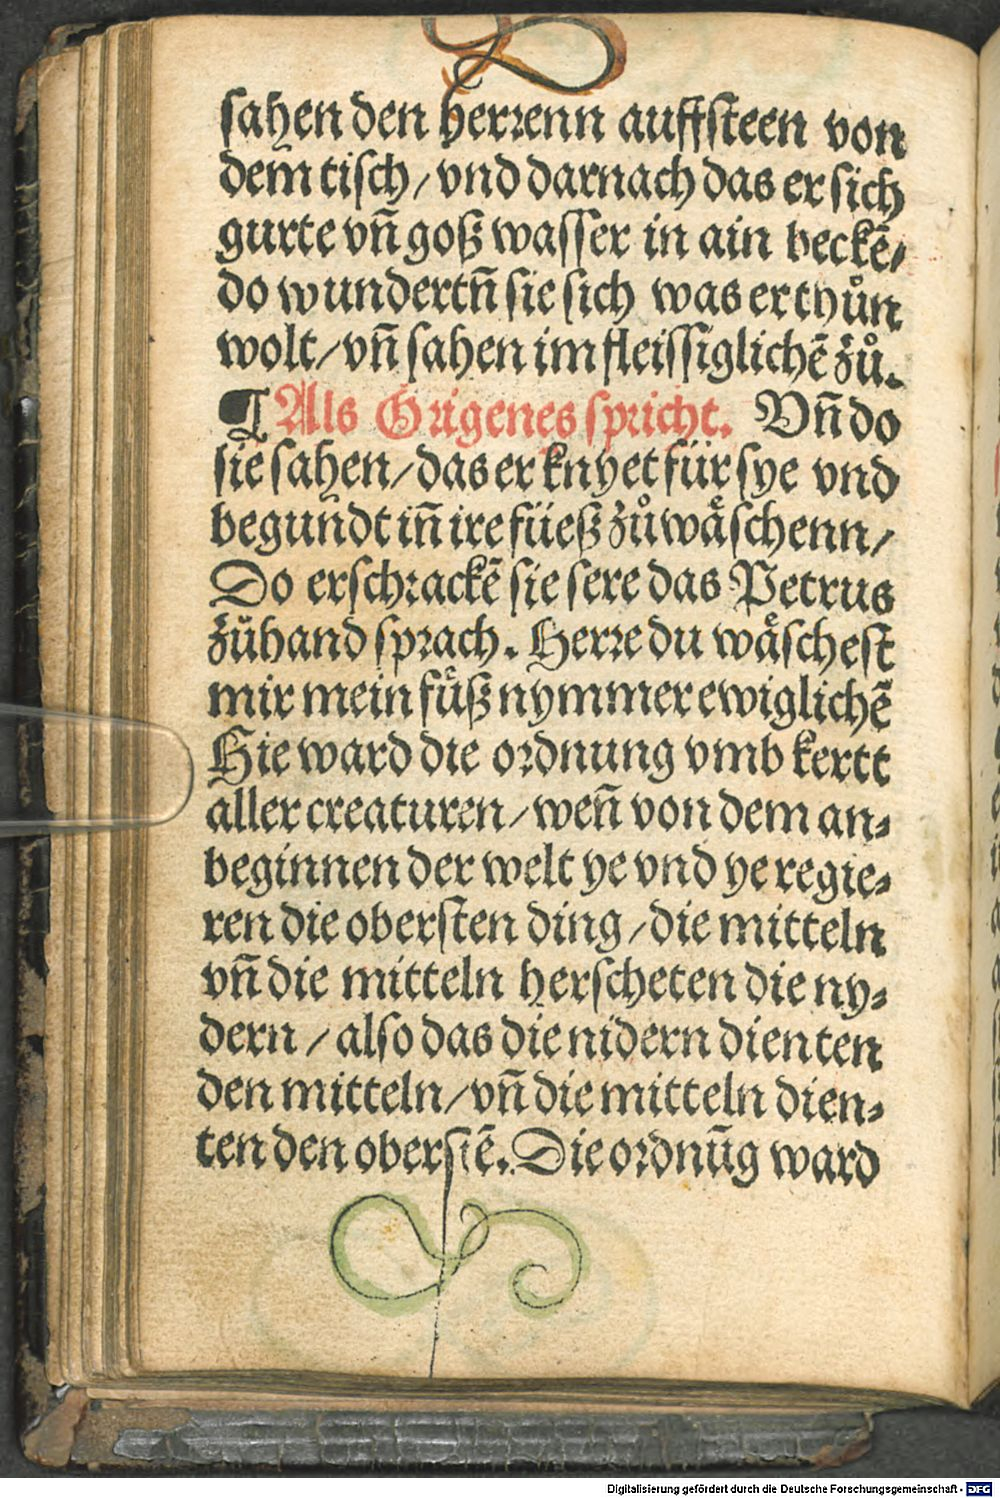 sahen den herrenn auffsteen von
dem tisch / vnd darnach das er sich
gurte vn̄ goß wasser in ain beckē /
do wundertn̄ sie sich was er thůn
wolt / vn̄ sahen im fleissiglichē zů.
¶ Als Origenes spricht. Vn̄ do
sie sahen / das er knyet für sye vnd
begundt in̄ ire füeß zů wäschenn /
Do erschrackē sie sere das Petrus
zůhand sprach. Herre du wäschest
mir mein füß nymmer ewiglichē
Hie ward die ordnung vmb kertt
aller creaturen / wen̄ von dem an-
beginnen der welt ye vnd ye regie-
ren die obersten ding / die mitteln
vn̄ die mitteln herscheten die ny-
dern / also das die nidern dienten
den mitteln / vn̄ die mitteln dien-
ten den oberstē. Die ordnūg ward
Digitalisierung gefördert durch die Deutsche Forschungsgemeinschaft - DFG